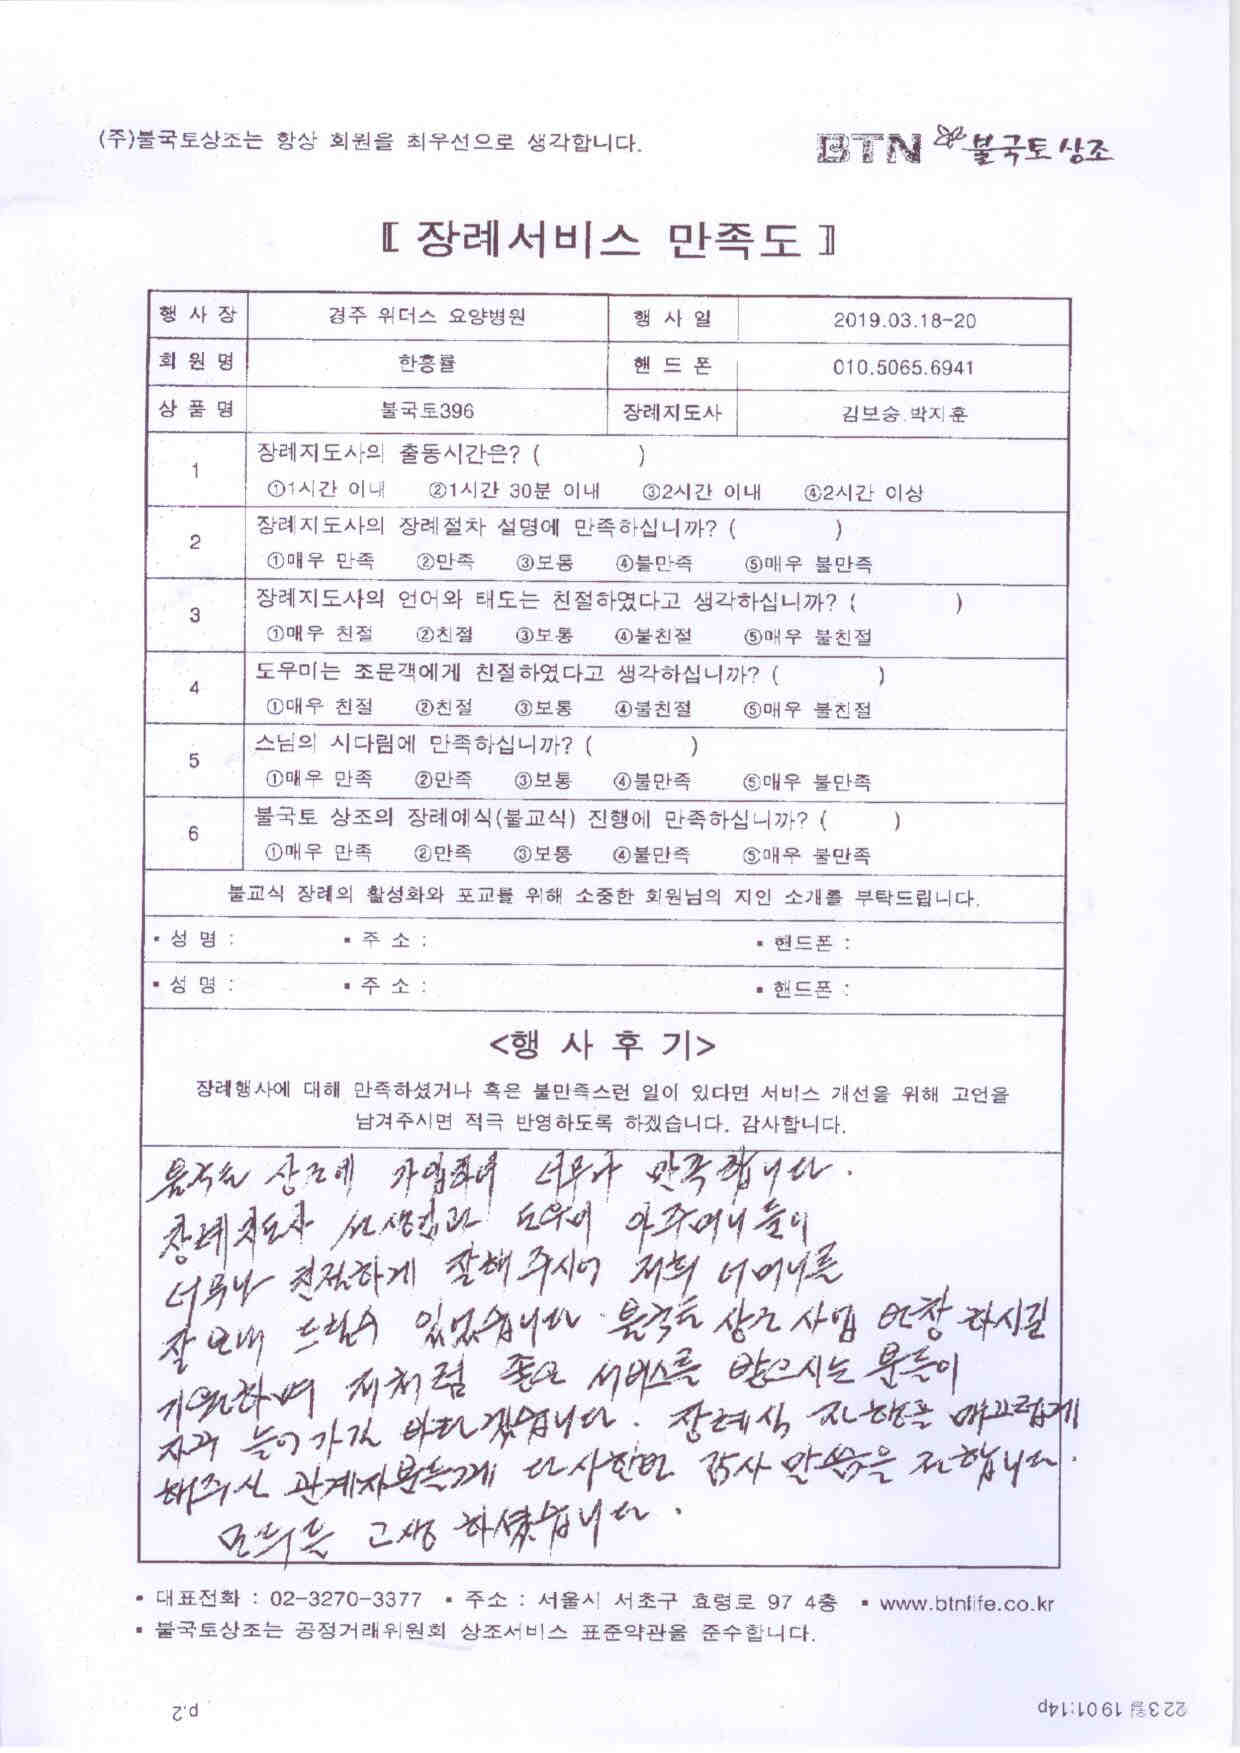 (주)불국토상조는 항상 회원을 최우선으로 생각합니다.
BTN 불국토상조
〖 장례서비스 만족도 〗
행 사 장 경주 위더스 요양병원 행 사 일 2019.03.18-20
회 원 명 한흥률 핸 드 폰 010.5065.6941
상 품 명 불국토396 장례지도사 김보승.박지훈
1 장례지도사의 출동시간은? ( )
①1시간 이내 ②1시간 30분 이내 ③2시간 이내 ④2시간 이상
2 장례지도사의 장례절차 설명에 만족하십니까? ( )
①매우 만족 ②만족 ③보통 ④불만족 ⑤매우 불만족
3 장례지도사의 언어와 태도는 친절하였다고 생각하십니까? ( )
①매우 친절 ②친절 ③보통 ④불친절 ⑤매우 불친절
4 도우미는 조문객에게 친절하였다고 생각하십니까? ( )
①매우 친절 ②친절 ③보통 ④불친절 ⑤매우 불친절
5 스님의 시다림에 만족하십니까? ( )
①매우 만족 ②만족 ③보통 ④불만족 ⑤매우 불만족
6 불국토 상조의 장례예식(불교식) 진행에 만족하십니까? ( )
①매우 만족 ②만족 ③보통 ④불만족 ⑤매우 불만족
불교식 장례의 활성화와 포교를 위해 소중한 회원님의 지인 소개를 부탁드립니다.
▪ 성 명 : ▪ 주 소 : ▪ 핸드폰 :
▪ 성 명 : ▪ 주 소 : ▪ 핸드폰 :
<행 사 후 기>
장례행사에 대해 만족하셨거나 혹은 불만족스런 일이 있다면 서비스 개선을 위해 고언을
남겨주시면 적극 반영하도록 하겠습니다. 감사합니다.
불국토 상조에 가입하여 너무나 만족합니다.
장례지도사 선생님과 도우미 아주머니들이
너무나 친절하게 잘해주시어 저희 어머니를
잘 보내 드릴수 있었습니다. 불국토 상조 사업 번창 하시길
기원하며 저처럼 좋은 서비스를 받으시는 분들이
자꾸 늘어가길 바라겠습니다. 장례식 진행을 매끄럽게
해주신 관계자분들께 다시한번 감사 말씀을 전합니다.
모두들 고생 하셨습니다.
▪ 대표전화 : 02-3270-3377 ▪ 주소 : 서울시 서초구 효령로 97 4층 ▪ www.btnlife.co.kr
▪ 불국토상조는 공정거래위원회 상조서비스 표준약관을 준수합니다.
p.2
22 3월 19 01:14p